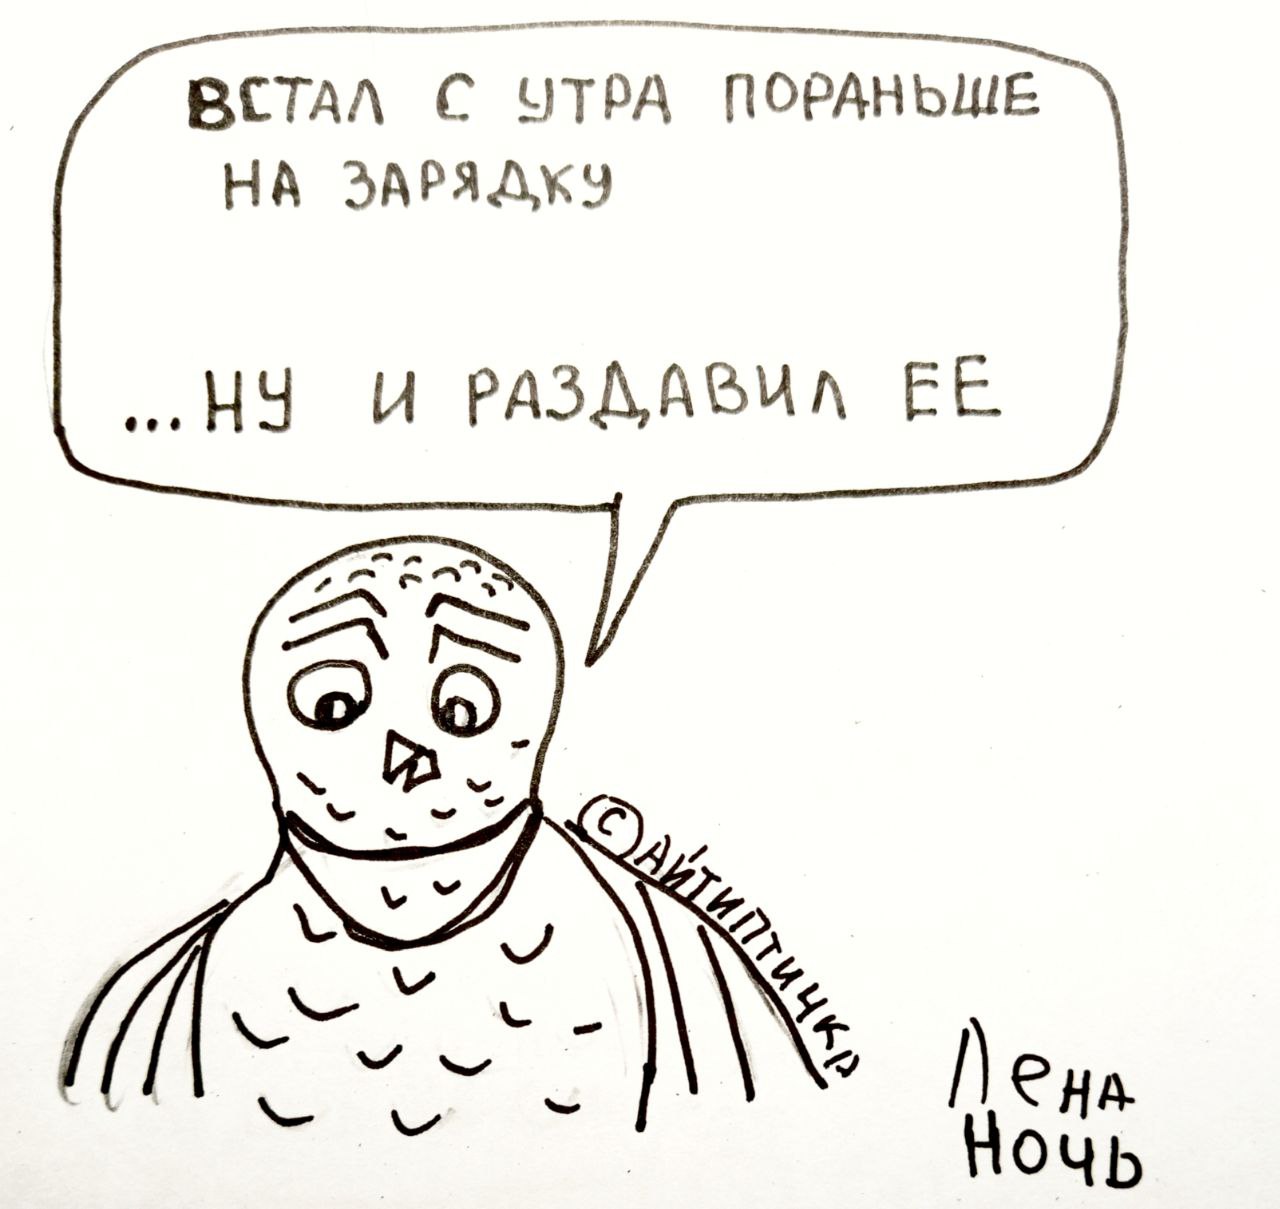 ВСТАЛ С УТРА ПОРАНЬШЕ
НА ЗАРЯДКУ
...НУ И РАЗДАВИЛ ЕЕ
© АЙТИПТИЧКА
Лена
Ночь